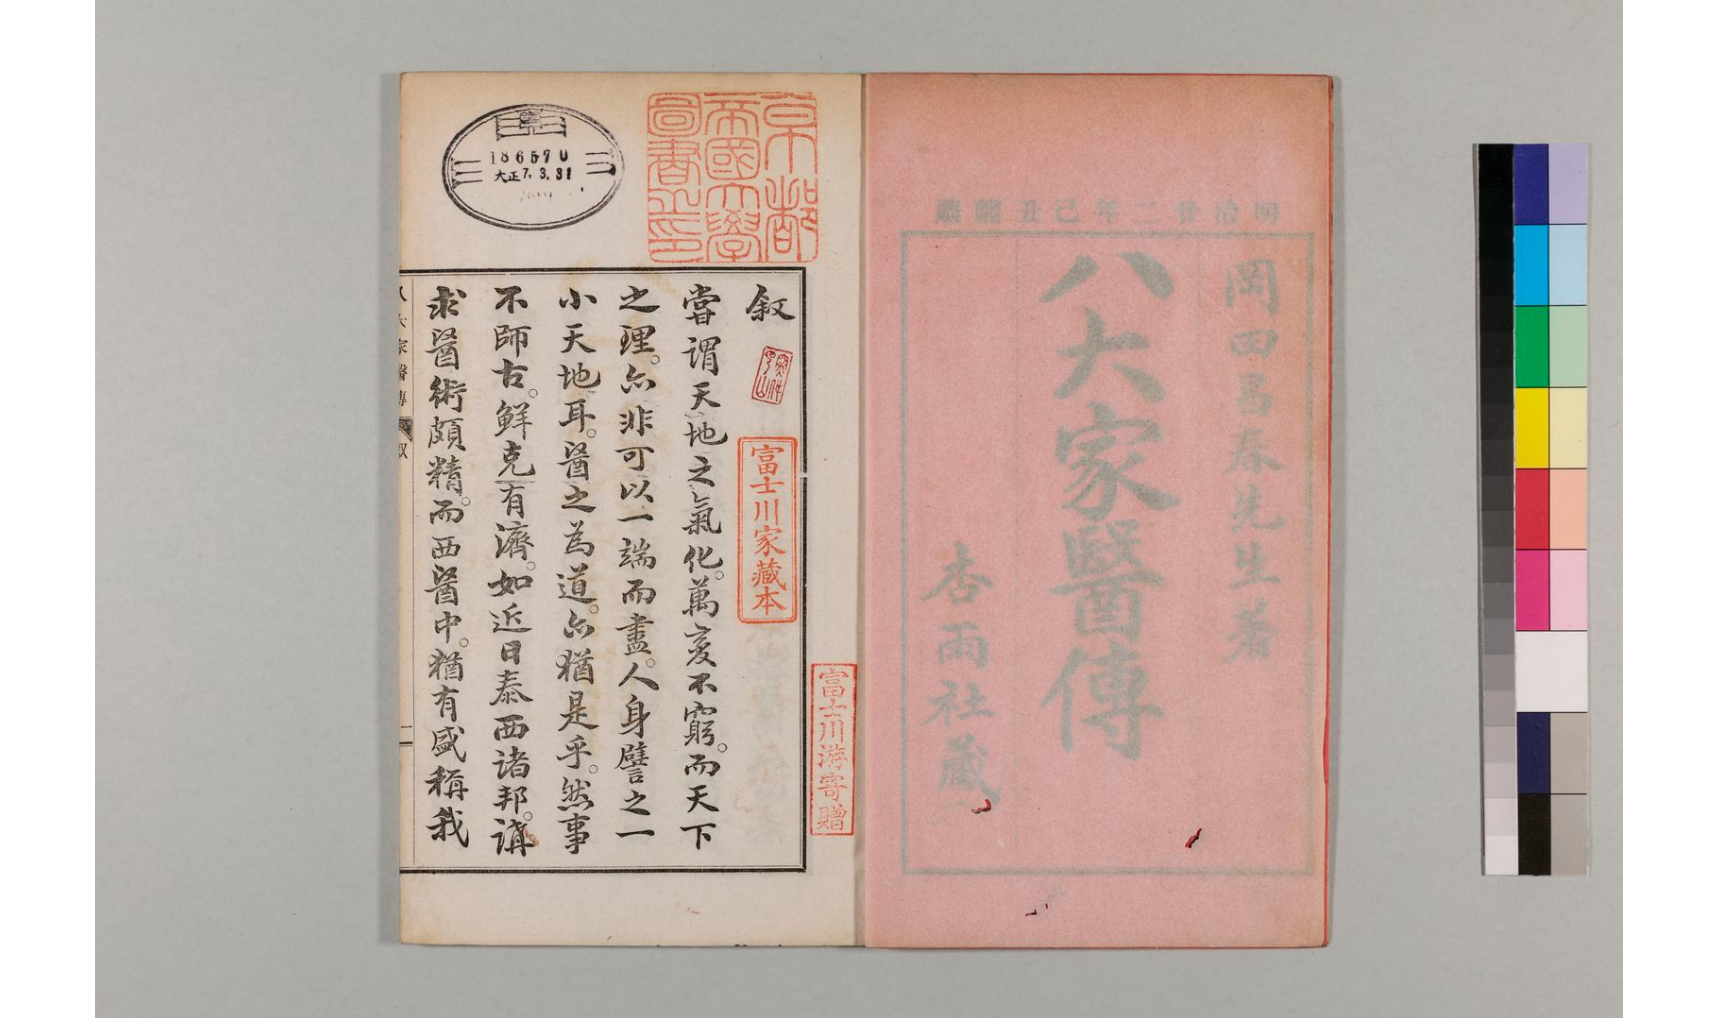 明治廿二年己丑鐫
岡田昌春先生著
八大家醫傳
杏雨社藏
京都
帝國大學
圖書之印
186570
大正7.3.31
富士川游寄贈
富士川家藏本
叙
嘗謂天地之氣化。萬変不窮。而天下
之理。亦非可以一端而盡。人身譬之一
小天地耳。醫之為道。亦猶是乎。然事
不師古。鮮克有濟。如近日泰西諸邦。講
求醫術頗精。而西醫中。猶有盛稱我
八大家醫傳
叙
一